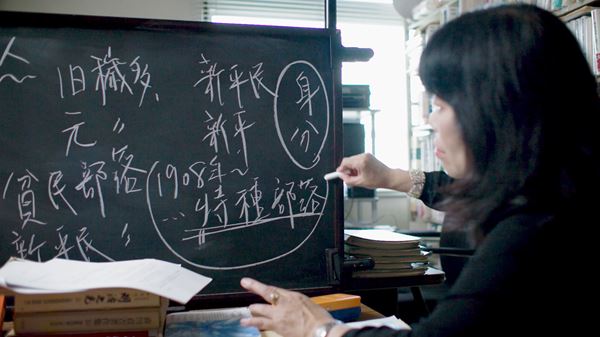 人
旧穢多、 新平民
元 〃 新平
身分
貧民部落
新平民 〃
1908年～
… 特種部落